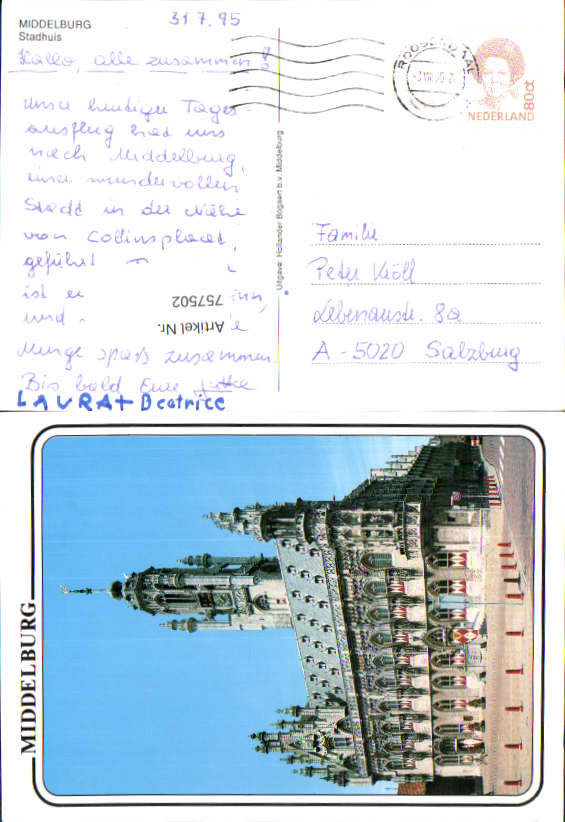 MIDDELBURG
Stadhuis
31.7.95
Hallo, alle zusammen
Unser heutiger Tages-
ausflug hat uns
nach Middelburg,
einer wundervollen
Stadt in der Nähe
von
geführt
ist
und
Menge Spaß zusammen.
Bis bald Eure
LAURA + Beatrice
Artikel Nr.
757502
Uitgave: Hollander Bogaert b.v. Middelburg
ROOSENDAAL
NEDERLAND
80ct
Familie
Peter Kröll
8a
A-5020 Salzburg
MIDDELBURG